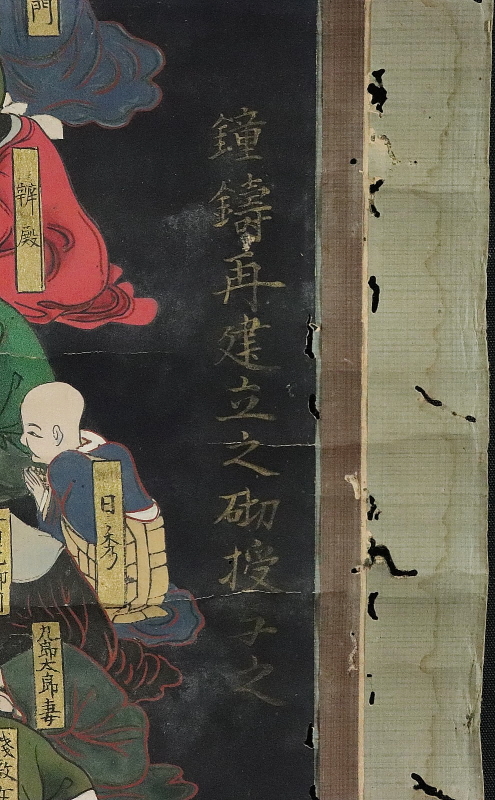 鐘鑄再建立之砌授子之
門
辨殿
日秀
九郎太郎妻